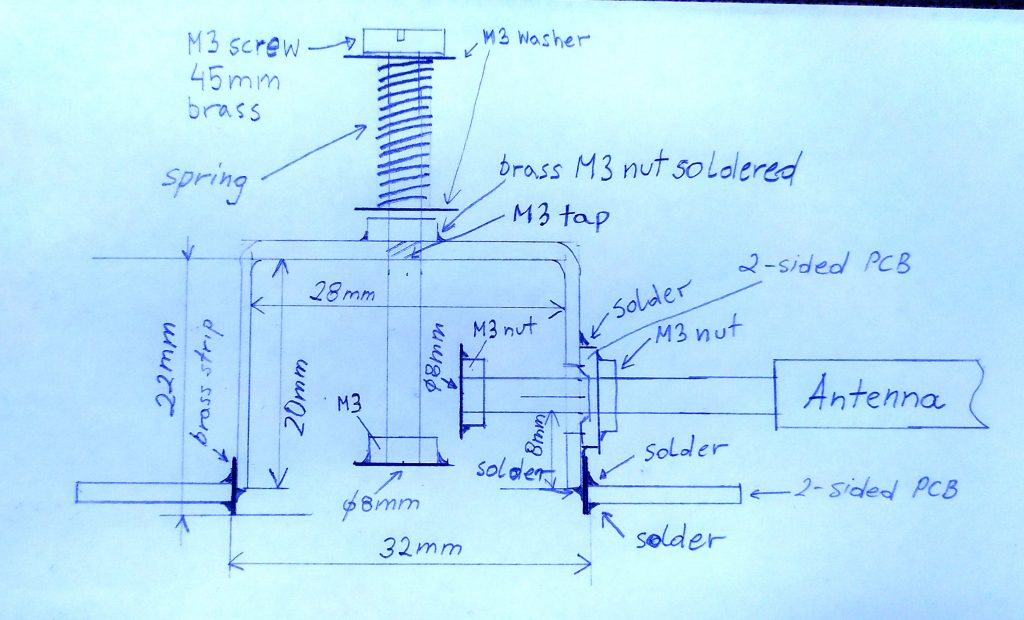 M3 screw
45mm
brass
M3 washer
spring
brass M3 nut soldered
M3 tap
2-sided PCB
28mm
solder
M3 nut
M3 nut
22mm
brass strip
20mm
ϕ8mm
M3
Antenna
8mm
solder
solder
ϕ8mm
2-sided PCB
solder
32mm